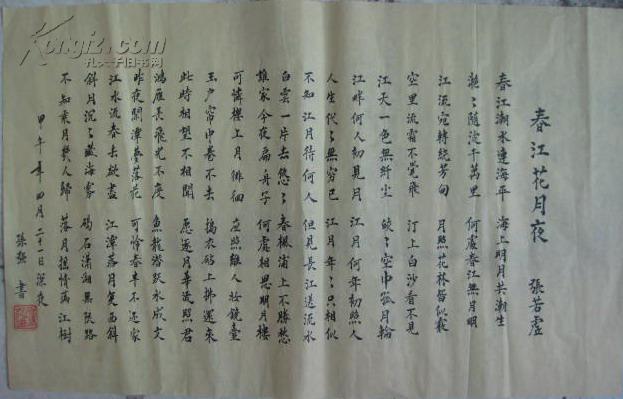 春江花月夜 張若虛
春江潮水連海平 海上明月共潮生
灔〻隨波千萬里 何處春江無月明
江流宛轉繞芳甸 月照花林皆似霰
空里流霜不覺飛 汀上白沙看不見
江天一色無纤尘 皎〻空中孤月輪
江畔何人初見月 江月何年初照人
人生代〻無窮已 江月年〻只相似
不知江月待何人 但見長江送流水
白雲一片去悠〻 青楓浦上不勝愁
誰家今夜扁舟子 何處相思明月樓
可憐樓上月徘徊 应照離人妝鏡臺
玉户帘中卷不去 搗衣砧上拂還來
此時相望不相聞 愿逐月華流照君
鴻雁長飛光不度 魚龍潛躍水成文
昨夜閑潭夢落花 可怜春半不还家
江水流春去欲盡 江潭落月复西斜
斜月沉〻藏海霧 碣石瀟湘無限路
不知乘月幾人歸 落月摇情满江樹
甲午年四月二十一日深夜
張強 書
Kongfz.com
孔夫子旧书网